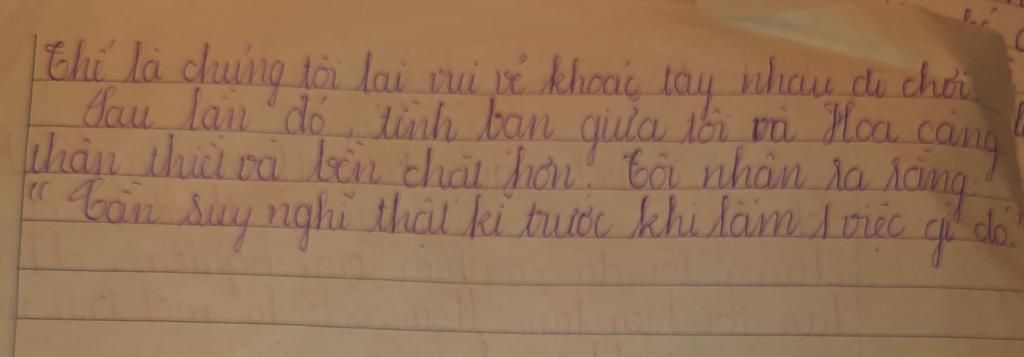 Thế là chúng tôi lại vui vẻ khoác tay nhau đi chơi.
Sau lần đó, tình bạn giữa tôi và Hoa càng
thân thiết và bền chặt hơn. Tôi nhận ra rằng
“ Cần suy nghĩ thật kĩ trước khi làm 1 việc gì đó.”